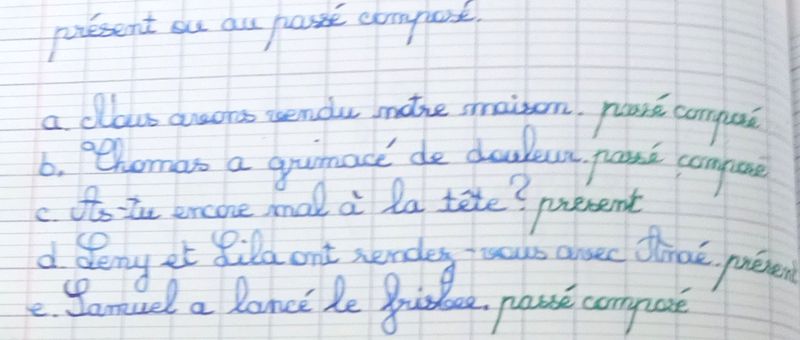 présent ou au passé composé.
a. Nous avons vendu notre maison. passé composé
b. Thomas a grimacé de douleur. passé composé
c. As-tu encore mal à la tête? présent
d. Leny et Lila ont rendez-vous avec Anaé. présent
e. Samuel a lancé le frisbee. passé composé